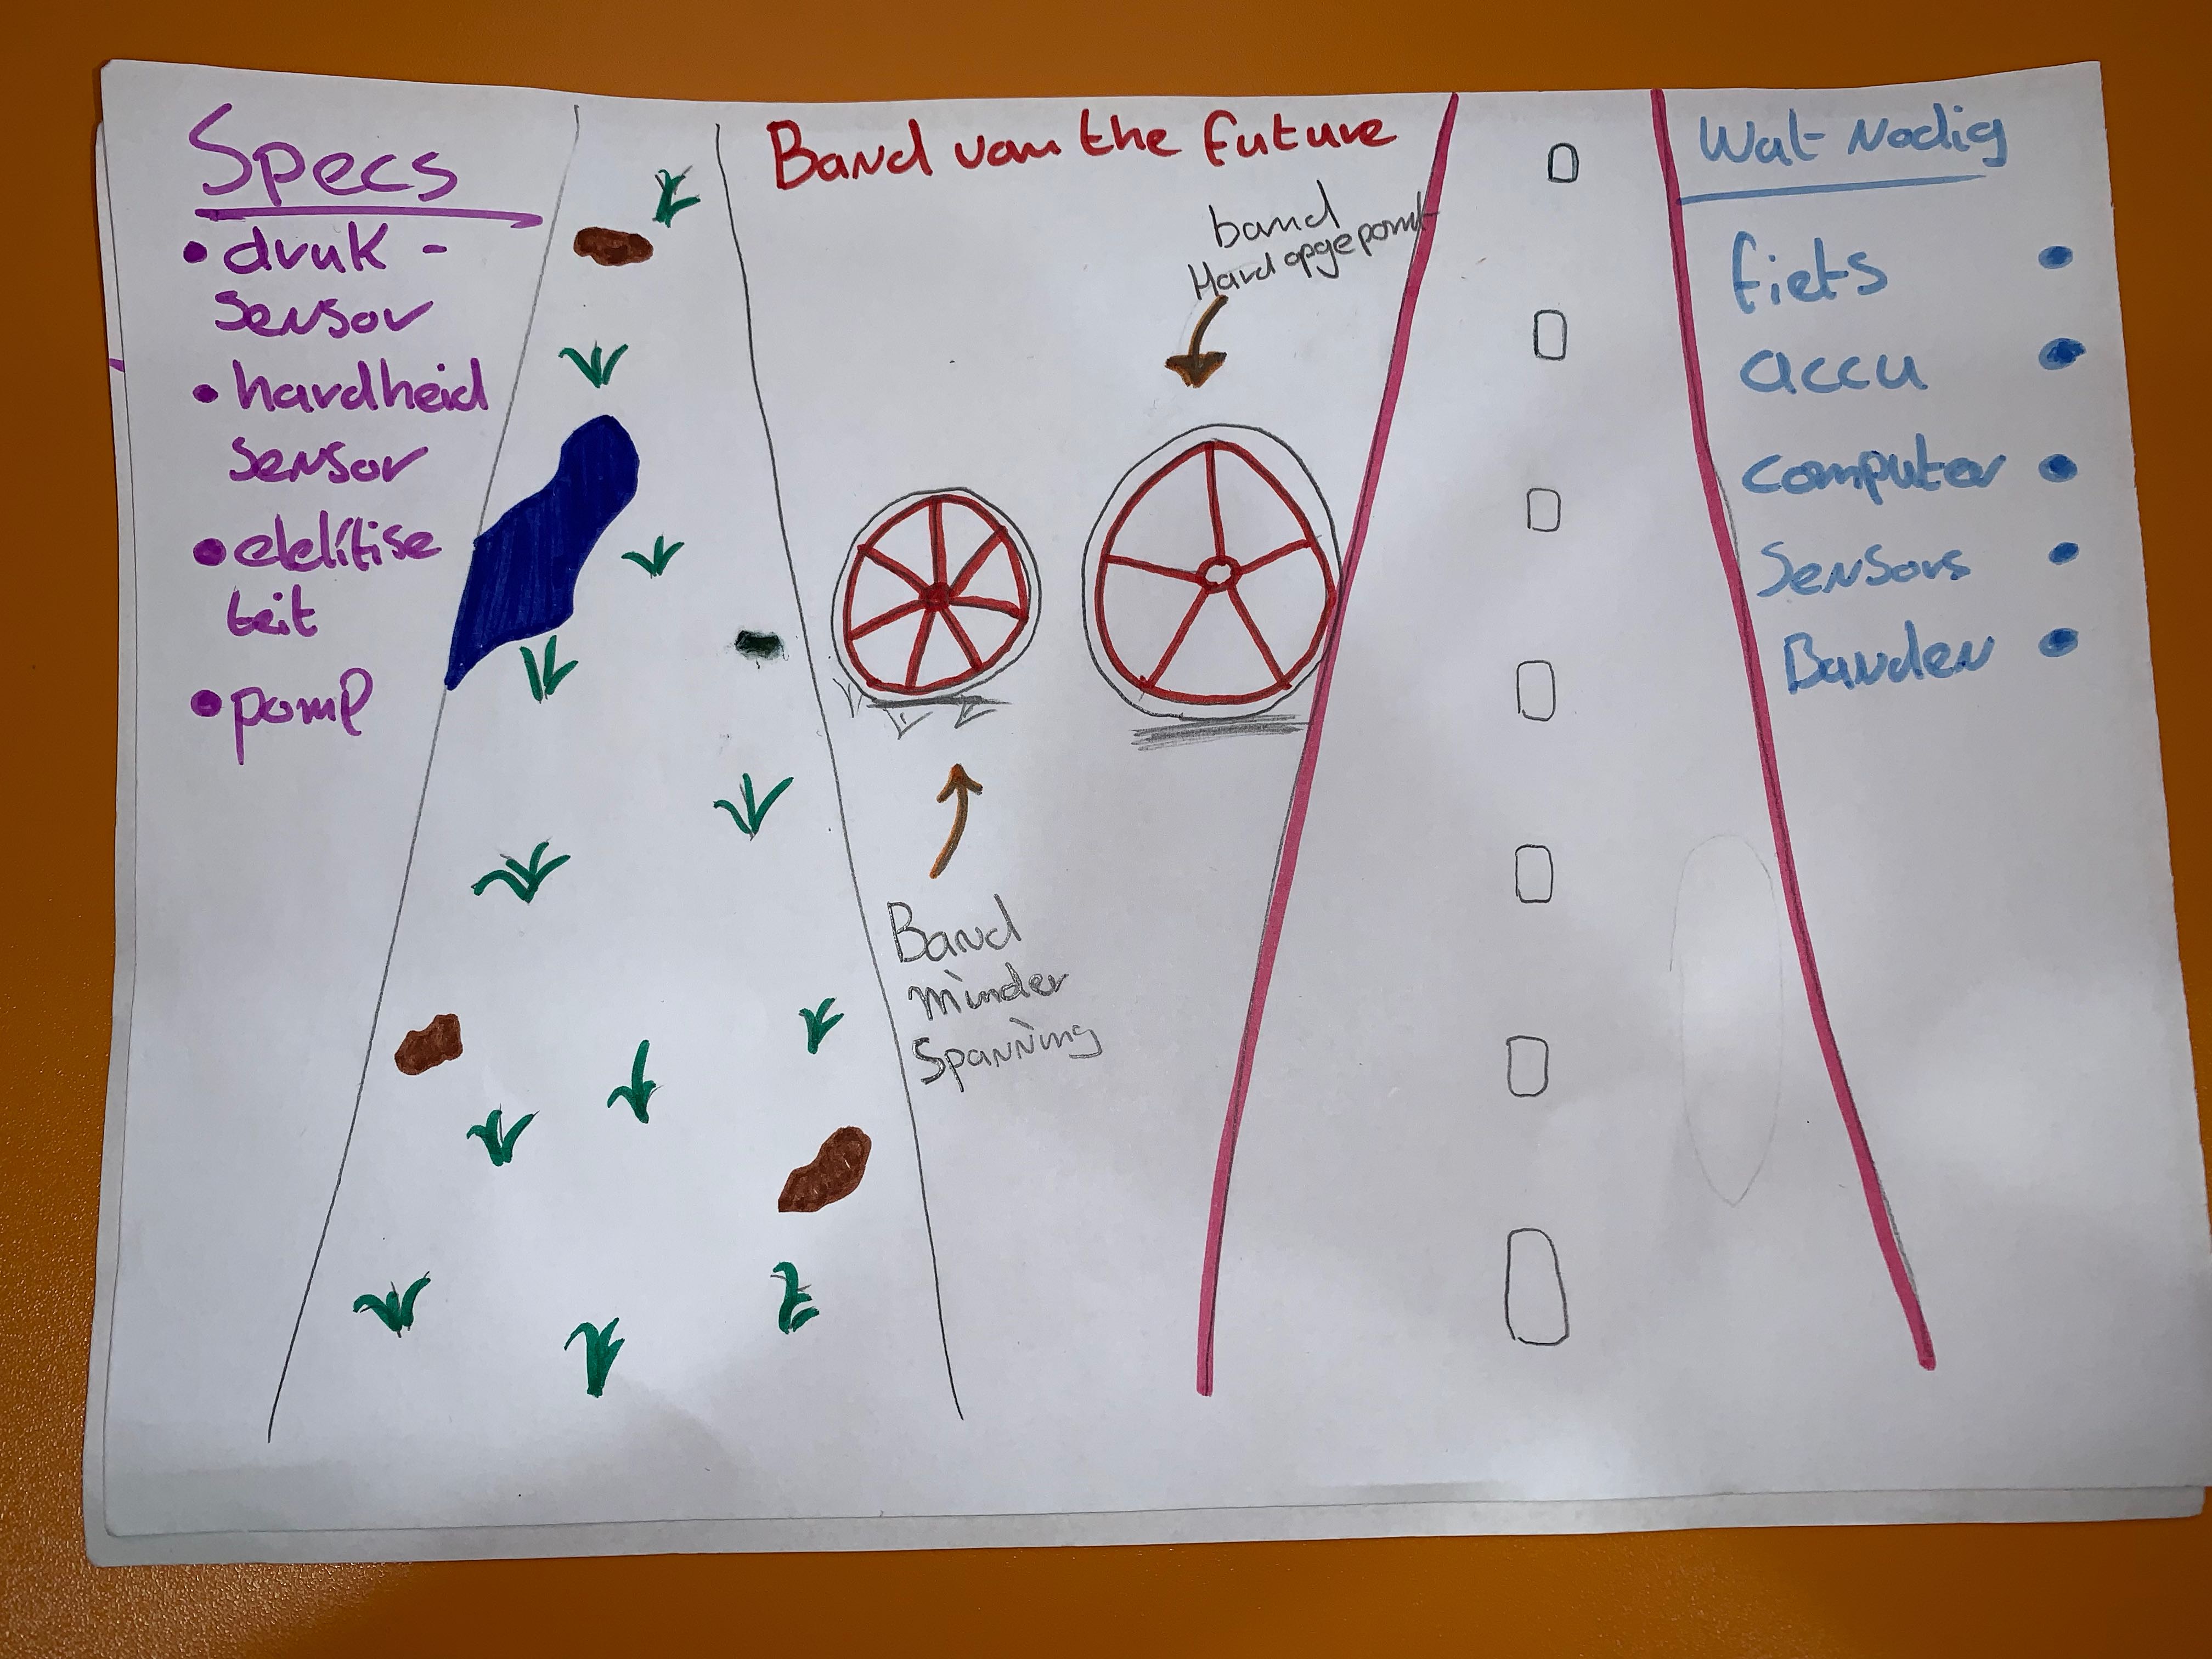 Specs
• druk -
sensor
• hardheid
sensor
• elelitise
teit
• pomp
Band van the future
band
Hard opgepomt
Band
minder
spanning
Wat Nodig
fiets •
accu •
computer •
sensors •
Banden •